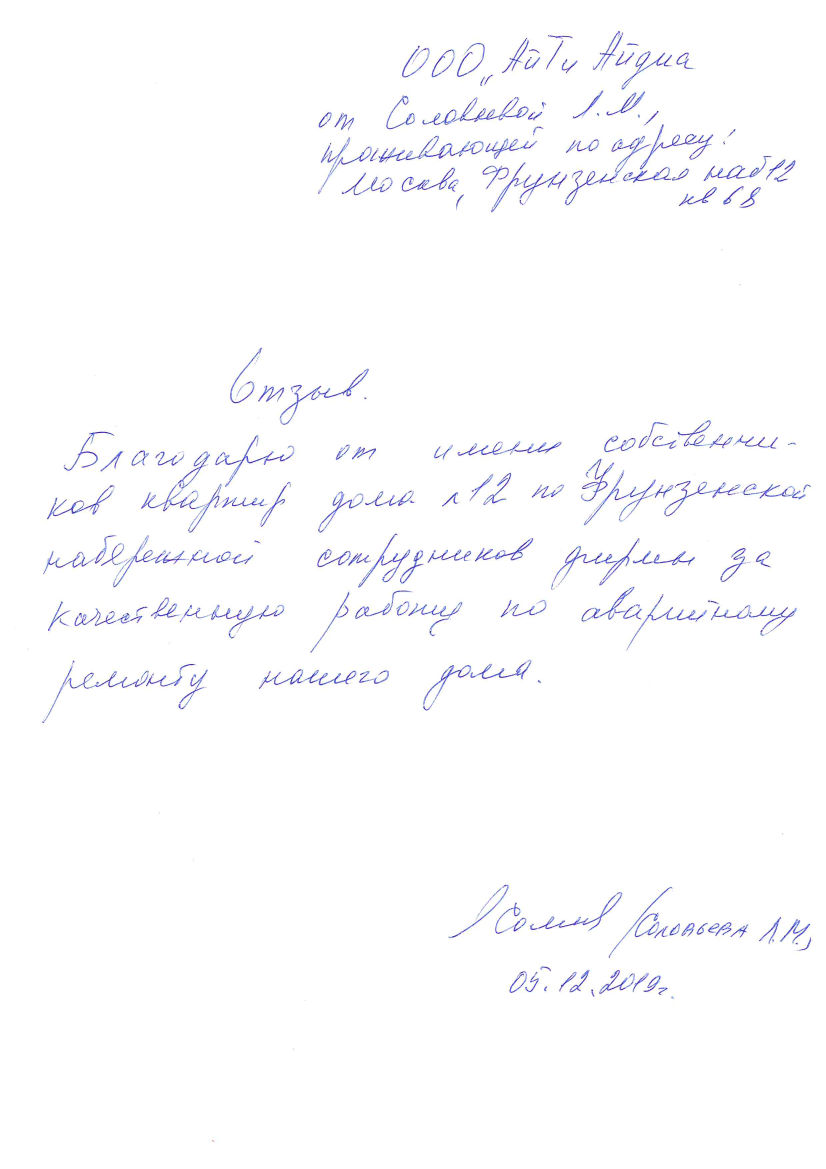 ООО „АйТи Айдиа
от Соловьевой Л.М.,
проживающей по адресу:
Москва, Фрунзенская наб 12
кв 68
Отзыв.
Благодарю от имени собственни-
ков квартир дома №12 по Фрунзенской
набережной сотрудников фирмы за
качественную работу по аварийному
ремонту нашего дома.
/Соловьева Л.М./
05.12.2019г.